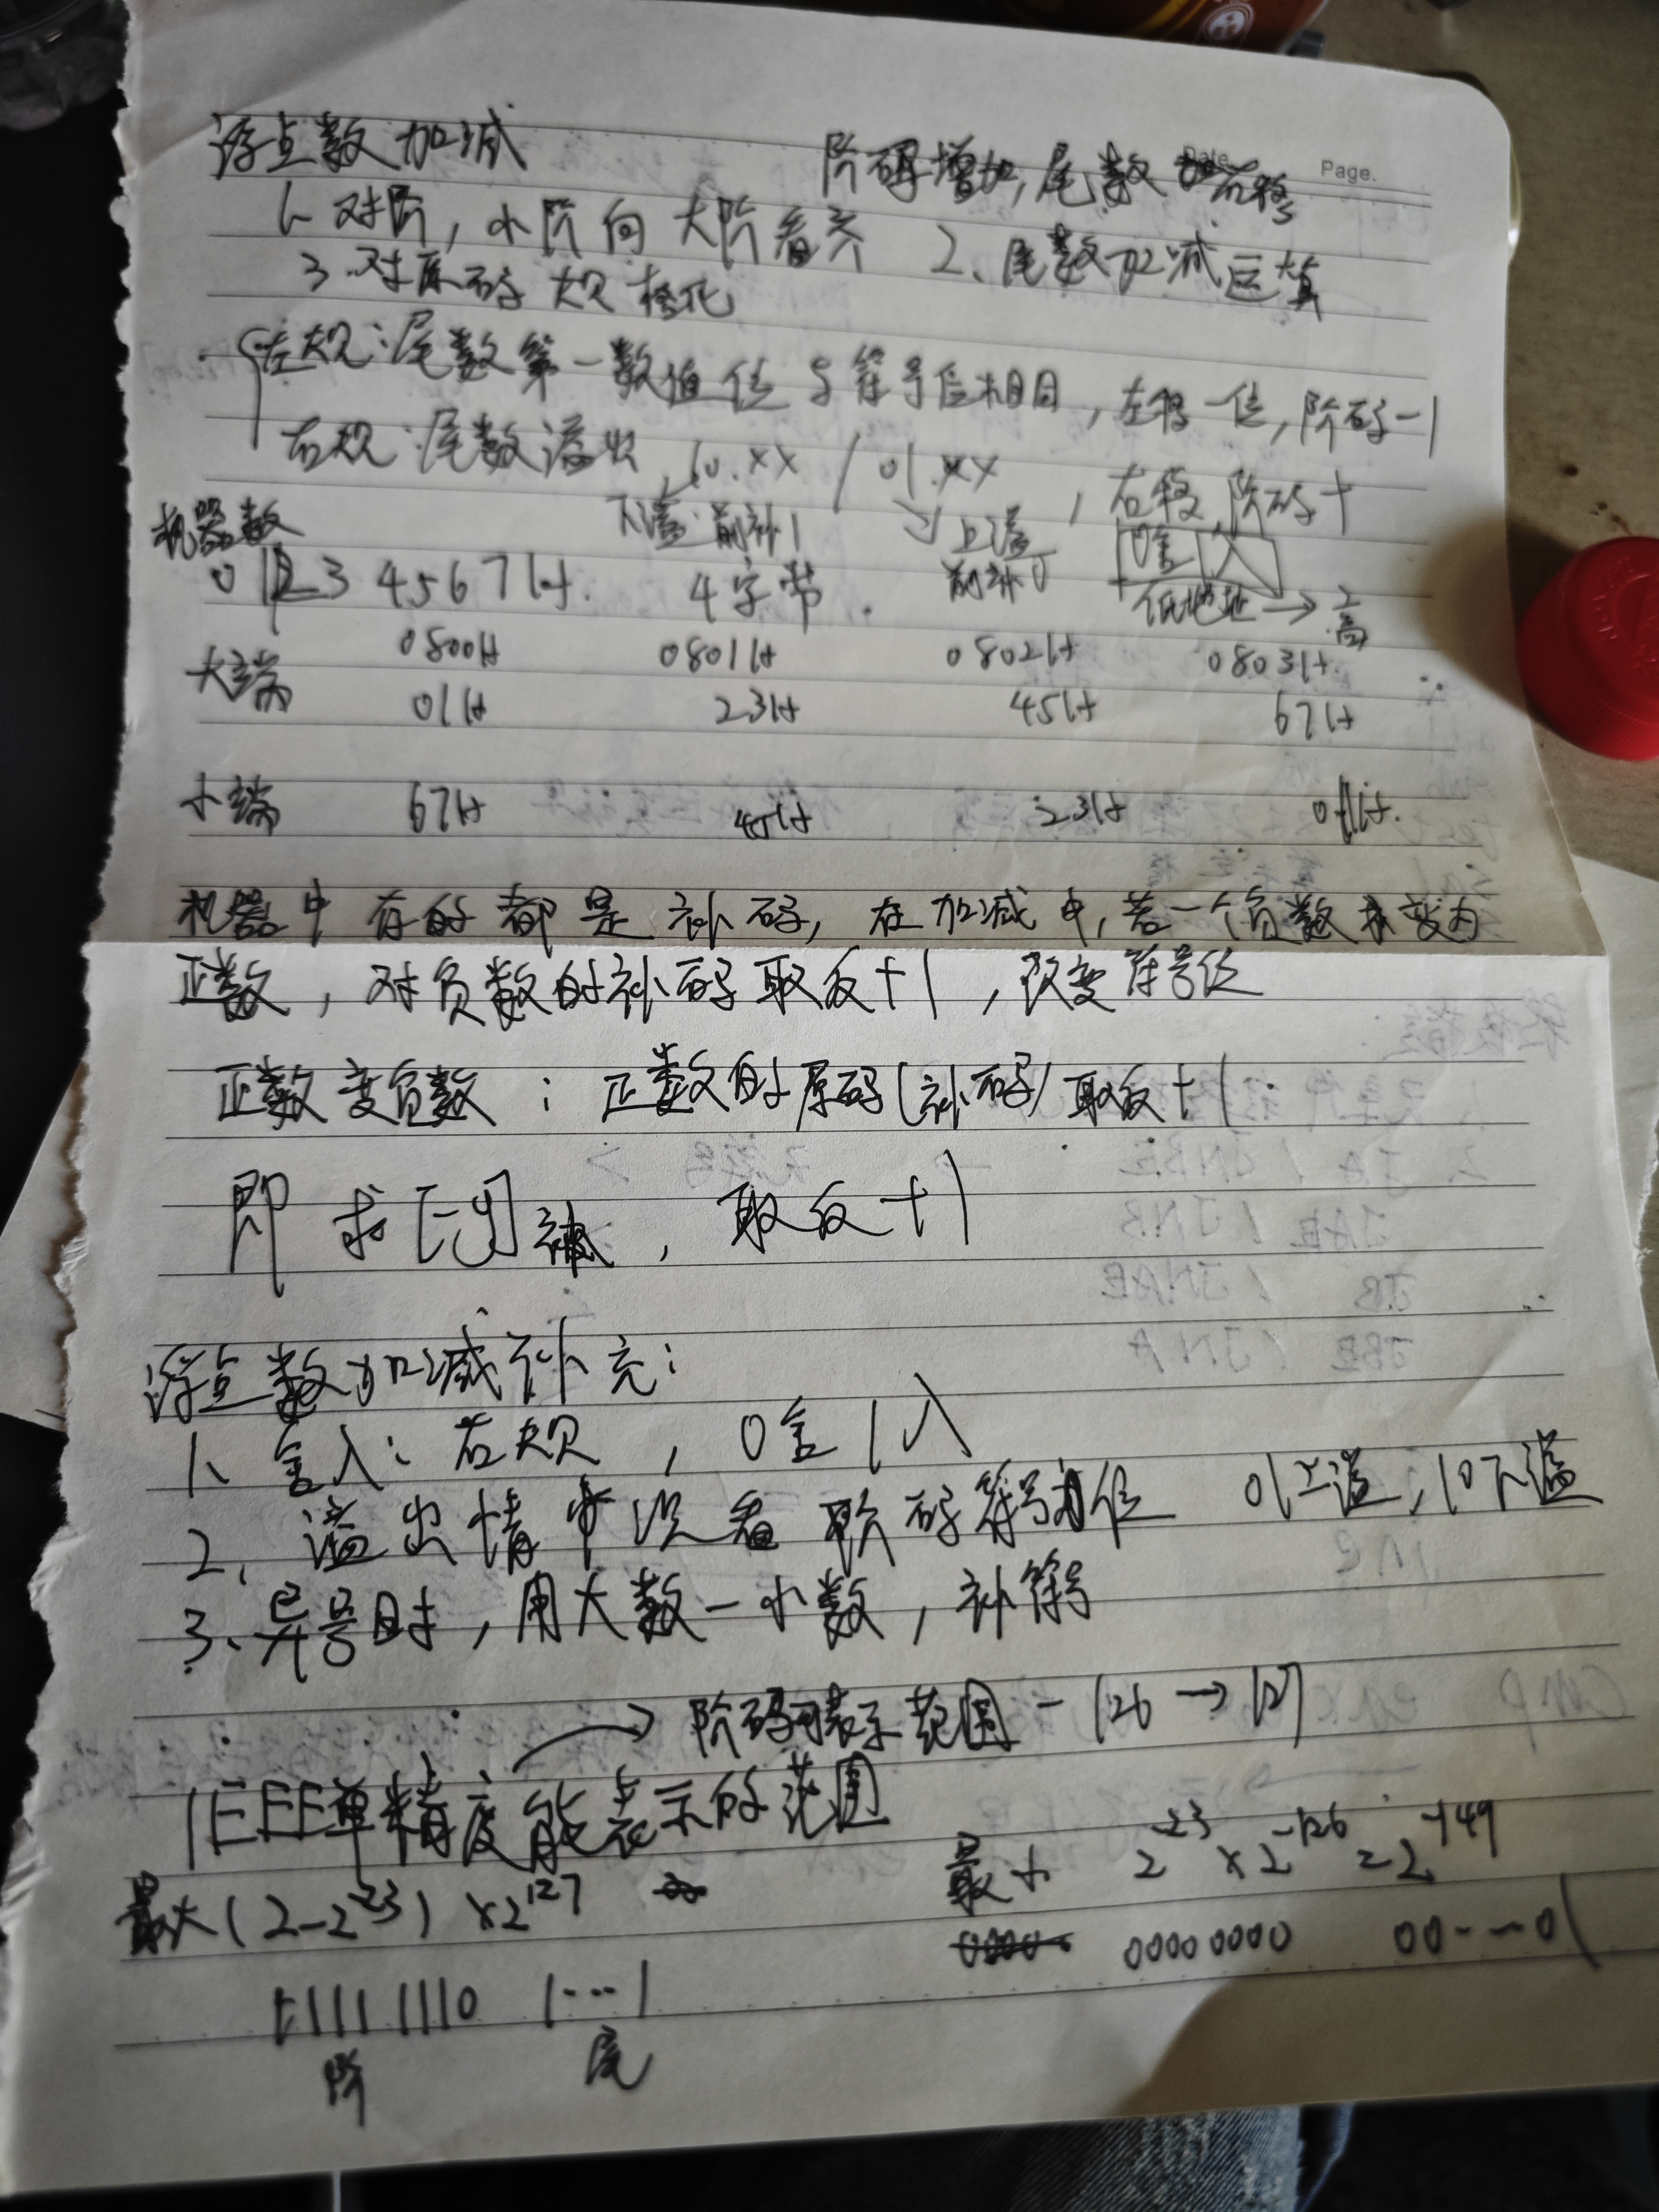 Date. Page.
浮点数加减 阶码增加,尾数右移
1、对阶,小阶向大阶看齐 2、尾数加减运算
3、对尾码规格化
左规:尾数第一数值位与符号位相同,左移一位,阶码-1
右规:尾数溢出 10.xx / 01.xx ,右移,阶码+1
下溢:前补1 上溢 前补0 0舍1入
机器数
01234567H. 4字节. 低地址→高
0800H 0801H 0802H 0803H.
大端 01H 23H 45H 67H
小端 67H 45H 23H 01H.
机器中存的都是补码,在加减中,若一个负数求变为
正数,对负数的补码取反+1,改变符号位
正数变负数:正数的原码(补码)取反+1.
即求[-y]补,取反+1
浮点数加减补充:
1、舍入:右规,0舍1入
2、溢出情况看阶码符号位 01上溢,10下溢
3、异号时,用大数-小数,补符号
→阶码可表示范围 -126→127
IEEE单精度能表示的范围
最大(2-2^-23)×2^127 最小 2^-23×2^-126=2^-149
00000000 00---01
11111110 1---1
阶 尾